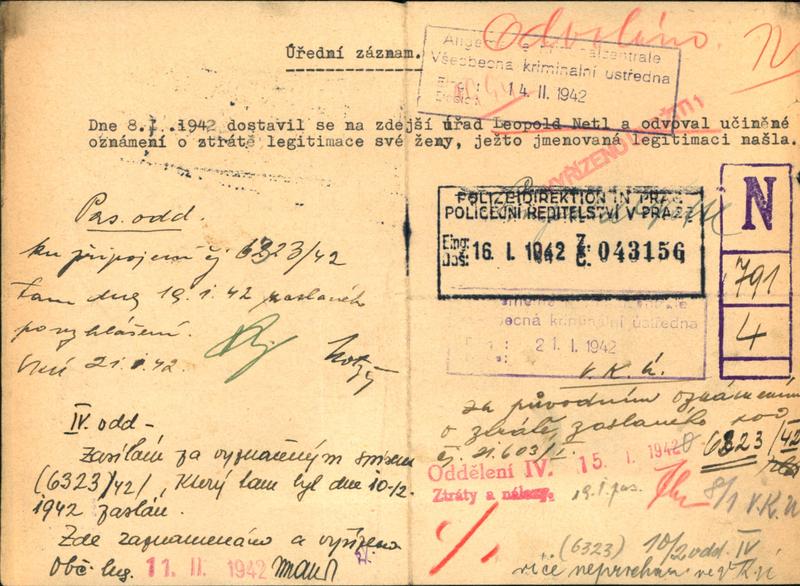 Odvoláno.
Úřední záznam.
Všeobecná kriminalní ústředna
14. II. 1942
Dne 8.I. 1942 dostavil se na zdejší úřad Leopold Netl a odvoval učiněné
oznámení o ztrátě legitimace své ženy, ježto jmenovaná legitimaci našla.
VYŘÍZENO
POLIZEIDIREKTION IN PRAG
POLICEJNÍ ŘEDITELSTVÍ V PRAZE
Eing.: 16. I. 1942 Z.: 043156
Doš.: Č.
N
791
4
Všeobecná kriminalní ústředna
21. I. 1942
Pas. odd.
ku připojení čj 6323/42
tam dne 19.I.42 zaslaného
po vyhlášení.
21.I.42
V.K.ú.
za původním oznámením
o ztrátě zaslaného pod
čj. 21.603/I. 6323/42
IV. odd-
Zasílám za vyznačeným spisem
(6323/42/, který tam byl dne 10-/2.
1942 zaslán.
Zde zaznamenáno a vyřízeno
11. II. 1942
Oddělení IV. 15. I. 1942
Ztráty a nálezy.
19.I. pas. 8/1 V.K.ú
(6323) 10/2 odd. IV
více